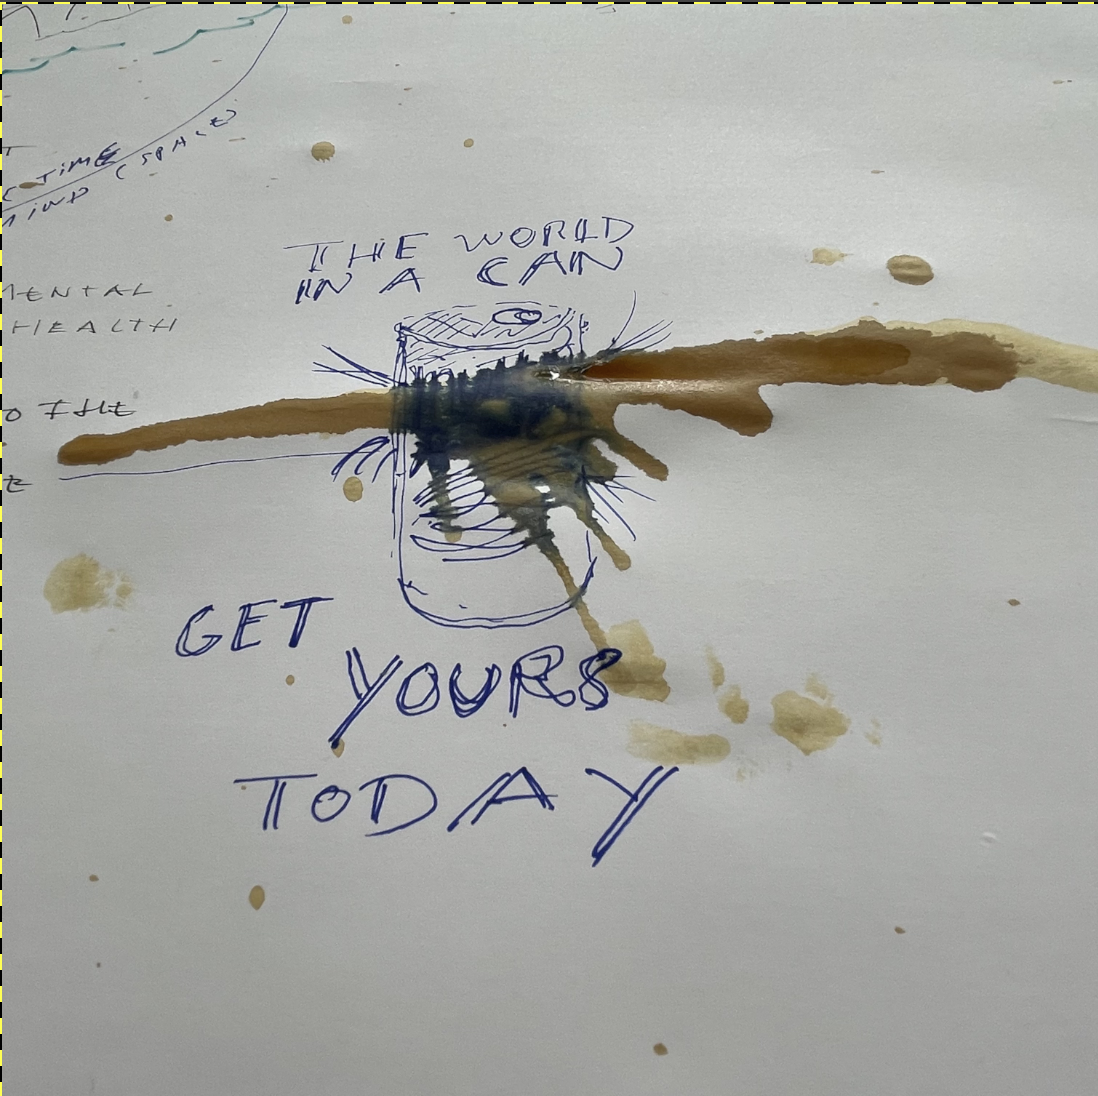 TIME
MIND (SPACE)
MENTAL
HEALTH
TO THE
THE WORLD
IN A CAN
GET
YOURS
TODAY